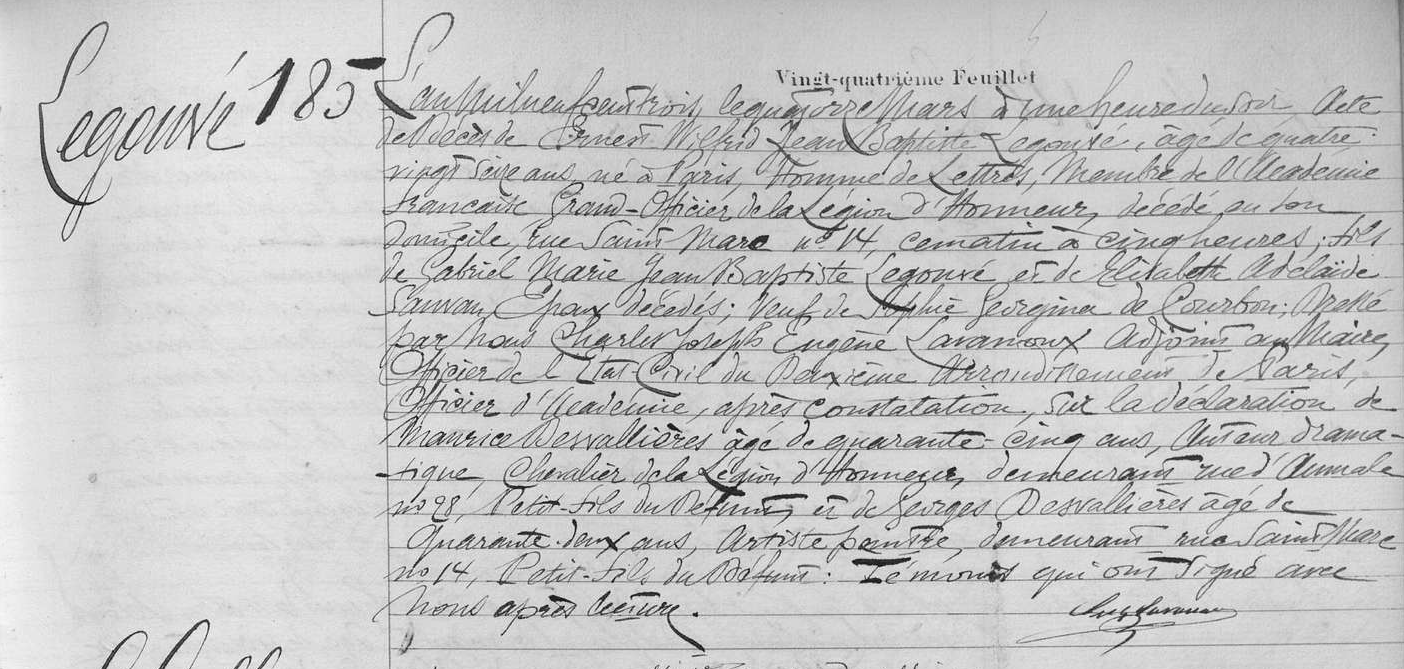 Vingt-quatrième Feuillet
Legouvé 185
L'an mil neuf cent trois, le quatorze Mars à une heure du soir Acte
de Décès de Ernest Wilfrid Jean Baptiste Legouvé, âgé de quatre-
vingt seize ans, né à Paris, Homme de Lettres, Membre de l'Académie
Francaise Grand-Officier de la Legion d'Honneur, décédé en son
domicile, rue Saint Marc no 14, ce matin à cinq heures; fils
de Gabriel Marie Jean Baptiste Legouvé et de Elisabeth Adélaïde
Sauvan, Epoux décédés; Veuf de Sophie Georgina de Courbon; Dressé
par Nous Charles Joseph Eugène Adjoint au Maire,
Officier de l'Etat-Civil du Deuxième Arrondissement de Paris,
Officier d'Academie, après constatation, sur la déclaration de
Maurice Desvallières âgé de quarante-cinq ans, Auteur drama-
-tique, Chevalier de la Légion d'Honneur, demeurant rue d'Aumale
no 28, Petit-fils du Défunt, et de Georges Desvallières âgé de
Quarante-deux ans, Artiste peintre, demeurant rue Saint Marc
no 14, Petit-fils du Défunt: Témoins qui ont signé avec
Nous après lecture.